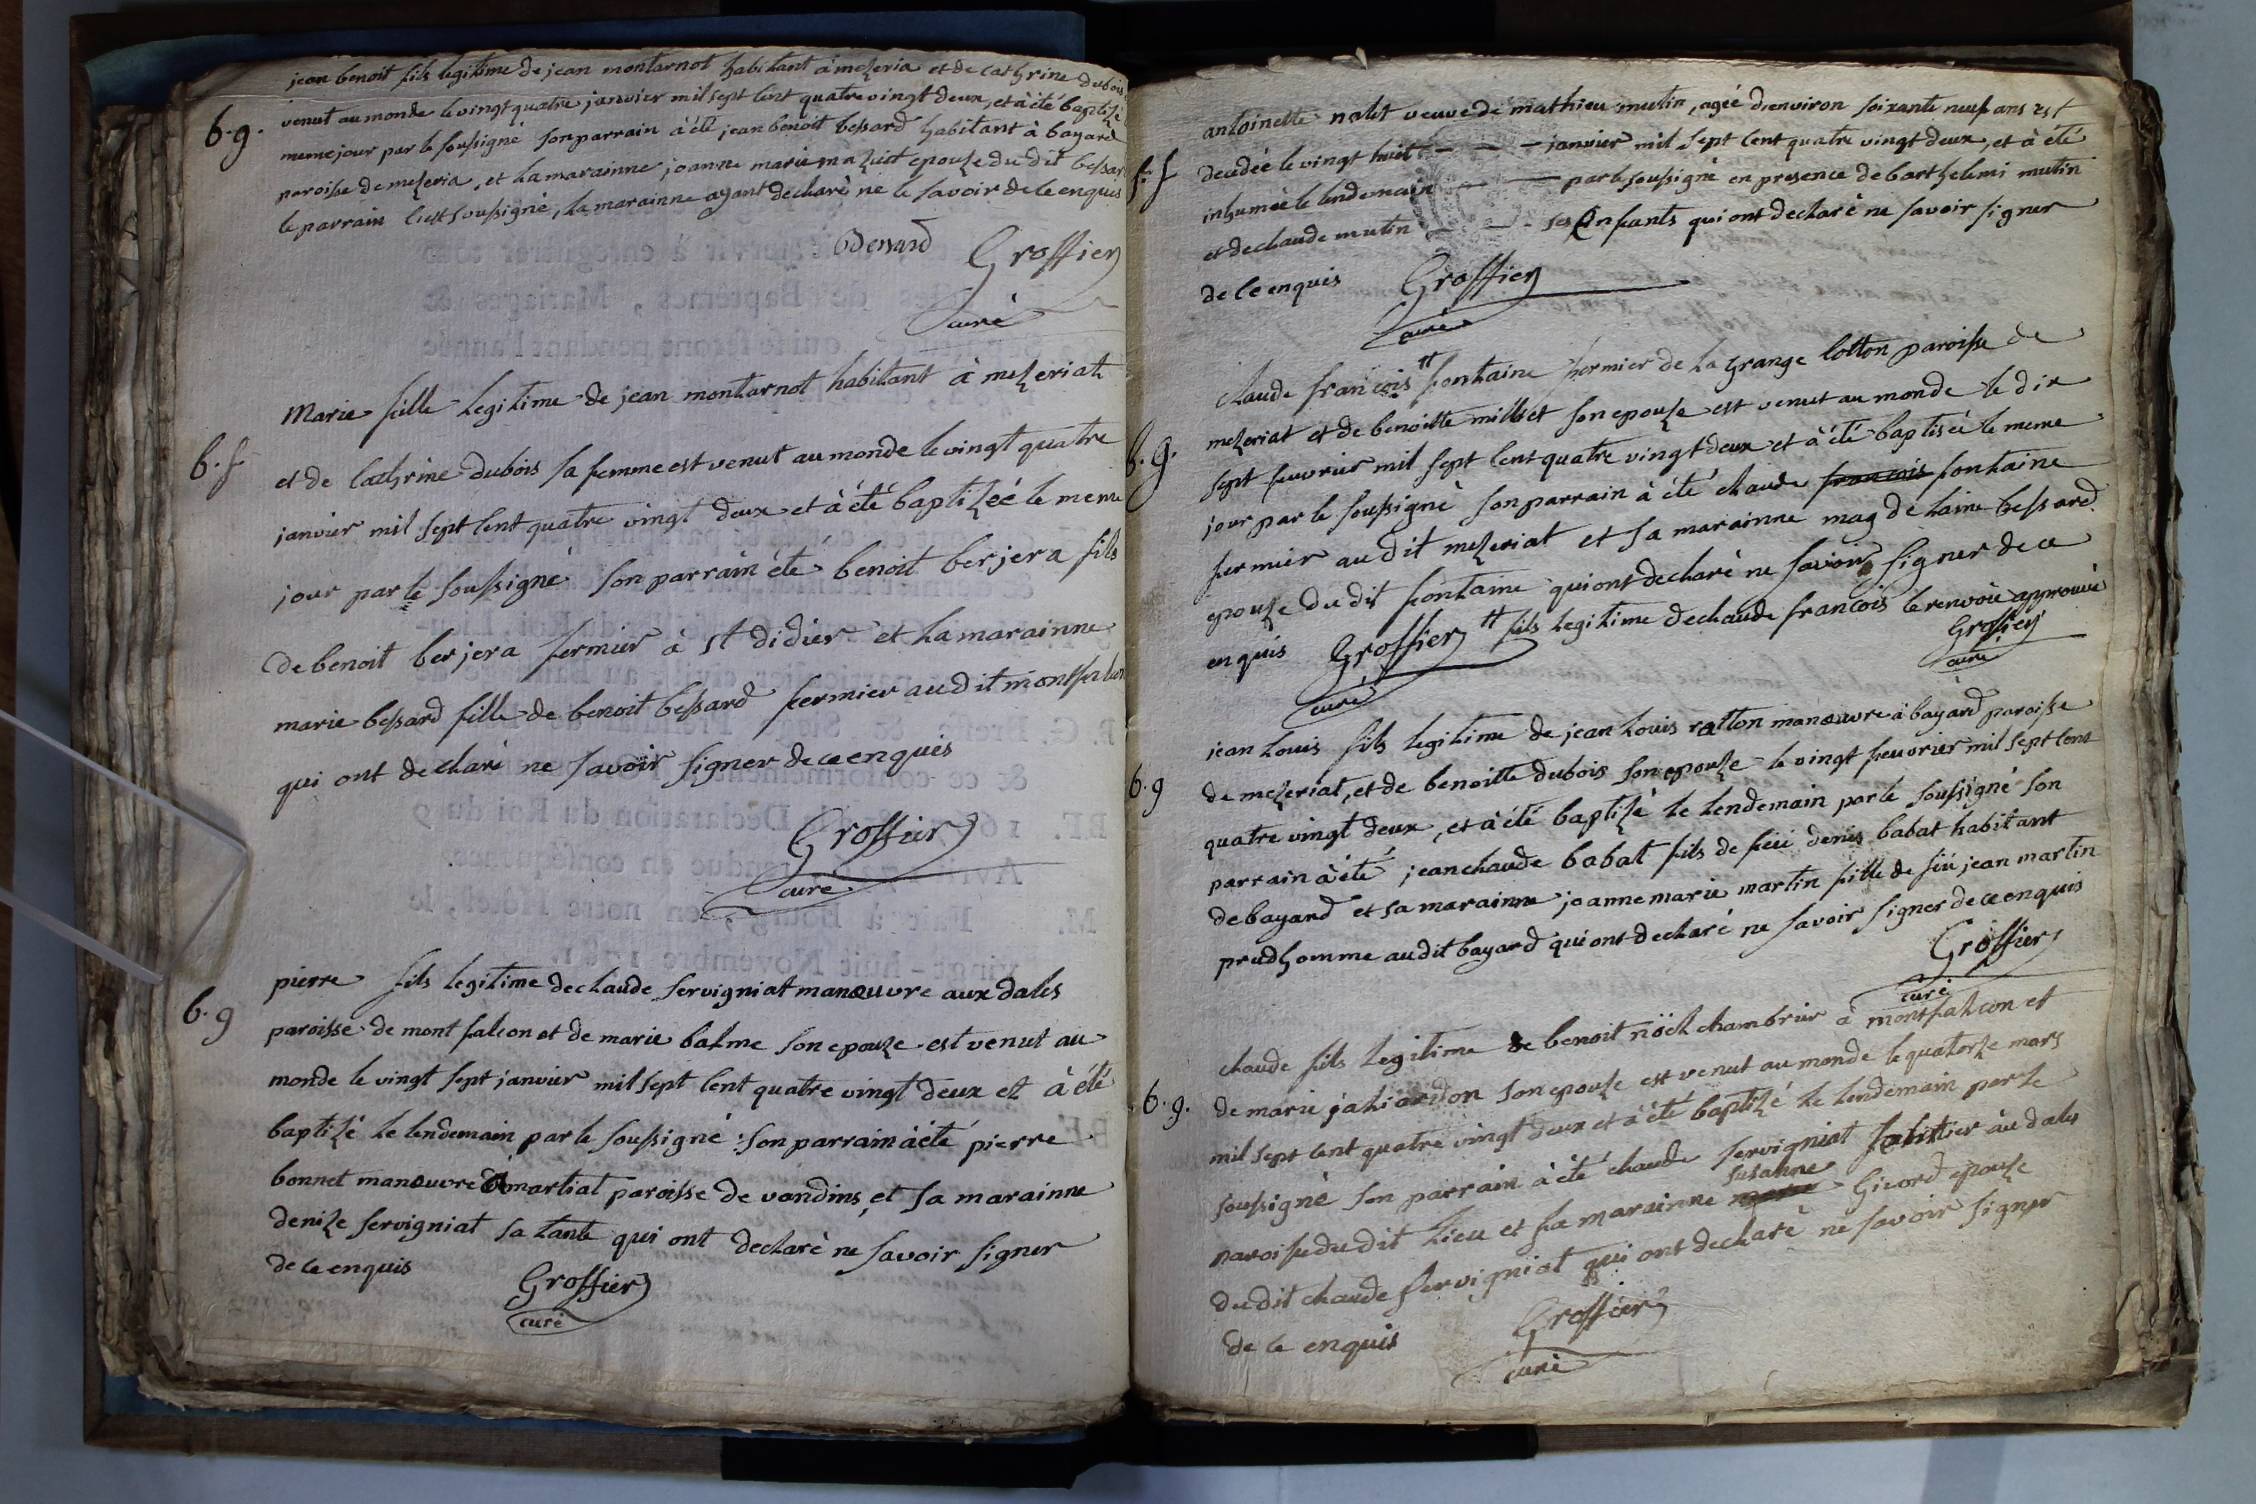 jean benoit fils legitime de jean montarnot habitant à mezeria et de cathrine dubois
b. g.
venut au monde le vingt quatre janvier mil sept cent quatre vingt deux, et à été baptizé
meme jour par le soussigné son parrain à été jean benoit bessard habitant à bayard
paroisse de mezeria, et la marainne joanne marie epouze du dit bessar
le parrain s'est soussigné, la marainne ayant declaré ne le savoir de ce enquis
Bessard Groffier
curé
Marie fille legitime de jean montarnot habitant à mezeriat
b. f.
et de Cathrine dubois sa femme est venut au monde le vingt quatre
janvier mil sept cent quatre vingt deux et à été baptizéé le meme
jour par le soussigné son parrain été benoit berjera fils
de benoit berjera fermier à st didier et la marainne
marie bessard fille de benoit bessard fermier au dit montfalcon
qui ont declaré ne savoir signer de ce enquis
Groffier
curé
pierre fils legitime de claude servigniat manœuvre aux dales
b. g
paroisse de mont falcon et de marie balme son epouze est venut au
monde le vingt sept janvier mil sept cent quatre vingt deux et à été
baptizé le lendemain par le soussigné : son parrain à été pierre
bonnet manœuvre à martiat paroisse de vandins, et sa marainne
denize servigniat sa tante qui ont declaré ne savoir signer
de ce enquis
Groffier
curé
antoinette veuve de mathieu mutin, agéé d'environ soixante neuf ans est
decedée le vingt huit janvier mil sept cent quatre vingt deux, et à été
inhumée le lendemain par le soussigné en presence de barthelemi mutin
et de claude mutin ses Enfants qui ont declaré ne savoir signer
de ce enquis Groffier
curé
claude françois # fontaine fermier de la grange cotton paroisse de
b. g.
mezeriat et de benoitte millet son epouse est venut au monde le dix
sept feuvrier mil sept cent quatre vingt deux et à été baptisé le meme
jour par le soussigné son parrain à été claude francois fontaine
fermier au dit mezeriat et sa marainne magdelaine bessard
epouze du dit fontaine qui ont declaré ne savoir signer de ce
enquis Groffier # fils legitime de claude francois le renvoie approuvé
curé Groffier
curé
jean louis fils legitime de jean louis ratton manœuvre à bayard paroisse
b. g
de mezeriat, et de benoitte dubois son epouze le vingt feuvrier mil sept cent
quatre vingt deux, et à été baptizé le lendemain par le soussigné son
parrain à été jean claude babat fils de feü denis babat habitant
de bayard et sa marainne joanne marie martin fille de feü jean martin
prudhomme au dit bayard qui ont declaré ne savoir signer de ce enquis
Groffier
curé
claude fils legitime de benoit nöel chambrier à montfalcon et
b. g.
de marie son epouse est venut au monde le quatorze mars
mil sept cent quatre vingt deux et à été baptizé le lendemain par le
soussigné son parrain à été claude servigniat au dales
susanne
paroisse du dit lieu et sa marainne Gicord epouze
du dit claude servigniat qui ont declaré ne savoir signer
de ce enquis Groffier
curé